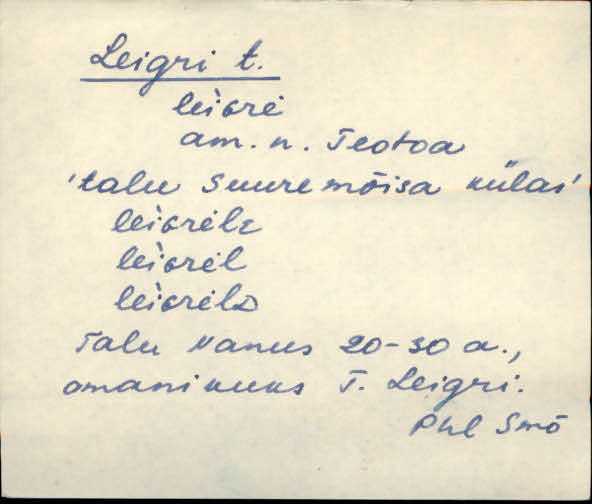 Leigri t.
lèiɢri
am. n. Teotoa
'talu Suuremõisa külas'
lèiɢrile
lèiɢril
lèiɢrilᴅ
Talu vanus 20-30 a.,
omanikuks T. Leigri.
Phl Smõ